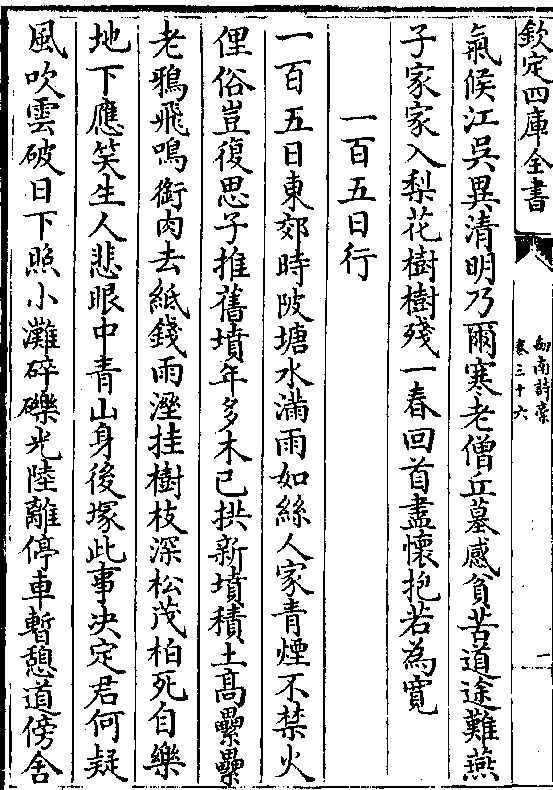 欽定四庫全書
劎南詩稾
卷三十六
一
氣候江吳異清明乃爾寒老僧丘墓感貧苦道途難燕
子家家入梨花樹樹殘一春回首盡懷抱若為寬
一百五日行
一百五日東郊時陂塘水滿雨如絲人家青煙不禁火
俚俗豈復思子推舊墳年多木已拱新墳積土髙纍纍
老鴉飛鳴銜肉去紙錢雨溼挂樹枝深松茂柏死自樂
地下應笑生人悲眼中青山身後塚此事决定君何疑
風吹雲破日下照小灘碎礫光陸離停車暫憩道傍舍